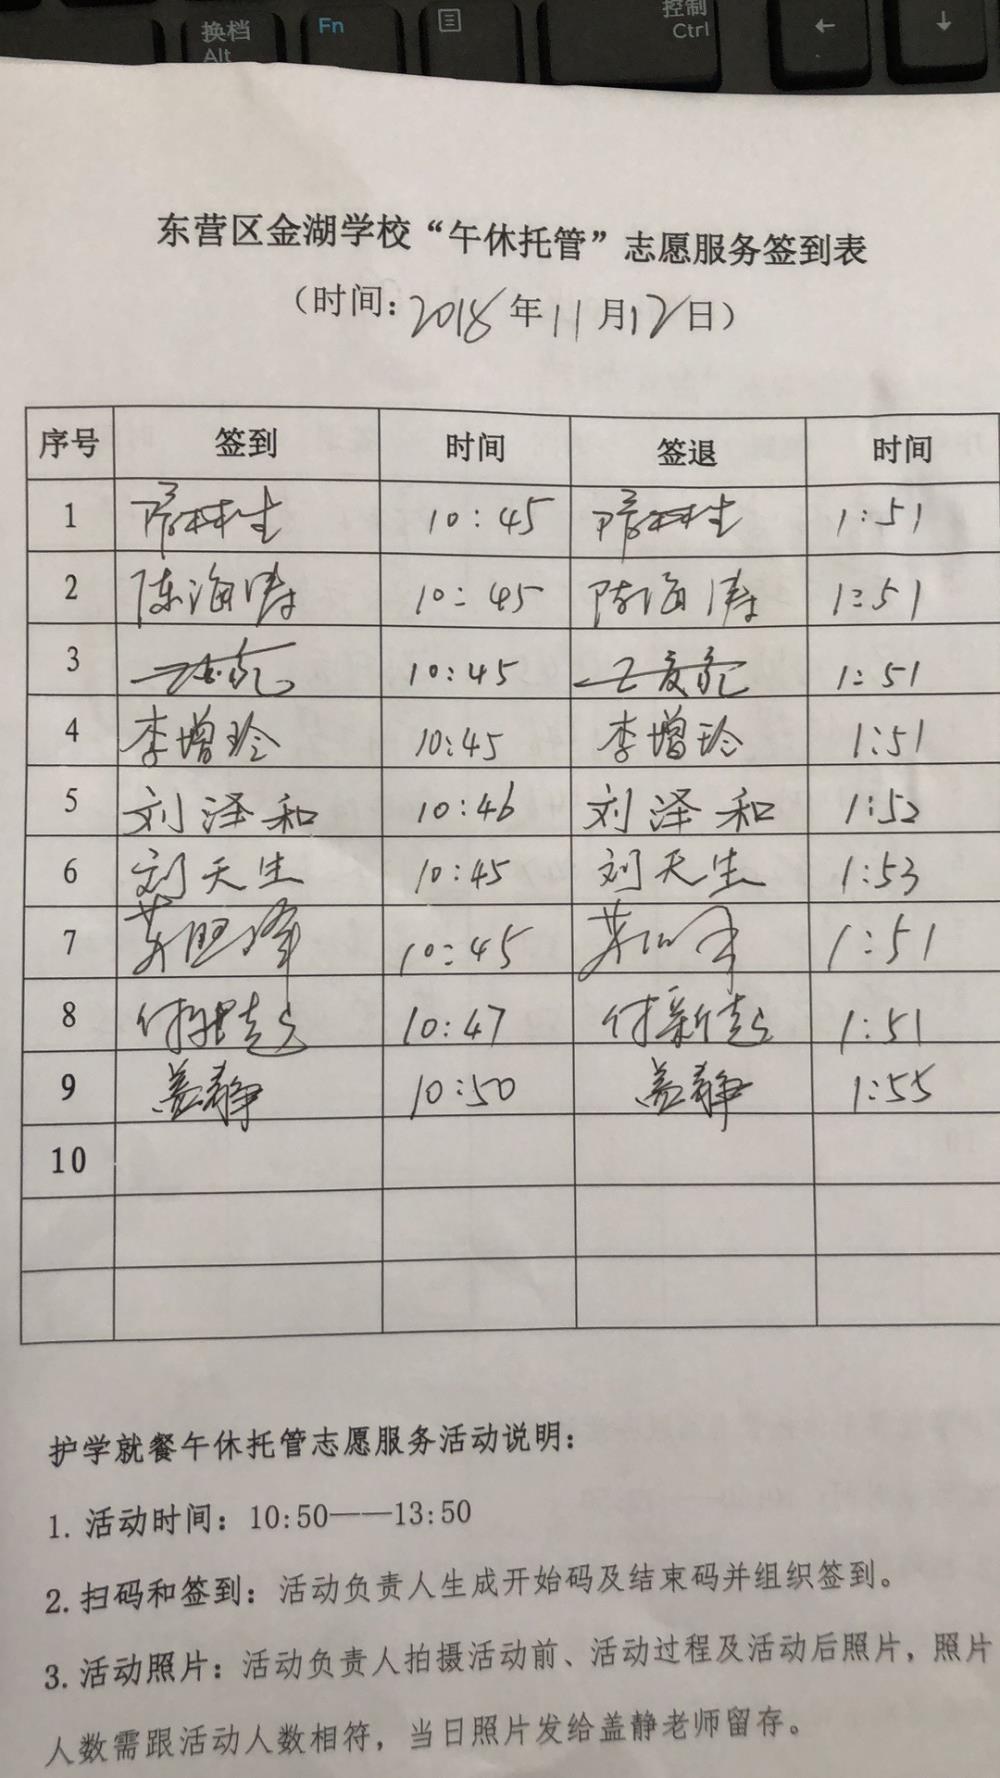 换档
Alt
Fn
控制
Ctrl
←
↓
东营区金湖学校“午休托管”志愿服务签到表
（时间：2018年11月12日）
序号 签到 时间 签退 时间
1 10：45 1：51
2 陈海涛 10：45 陈海涛 1：51
3 10：45 1：51
4 李增玲 10:45 李增玲 1:51
5 刘泽和 10:46 刘泽和 1:52
6 刘天生 10:45 刘天生 1:53
7 10:45 1:51
8 10:47 付新起 1:51
9 盖静 10:50 盖静 1:55
10
护学就餐午休托管志愿服务活动说明：
1. 活动时间：10:50——13:50
2. 扫码和签到：活动负责人生成开始码及结束码并组织签到。
3. 活动照片：活动负责人拍摄活动前、活动过程及活动后照片，照片
人数需跟活动人数相符，当日照片发给盖静老师留存。